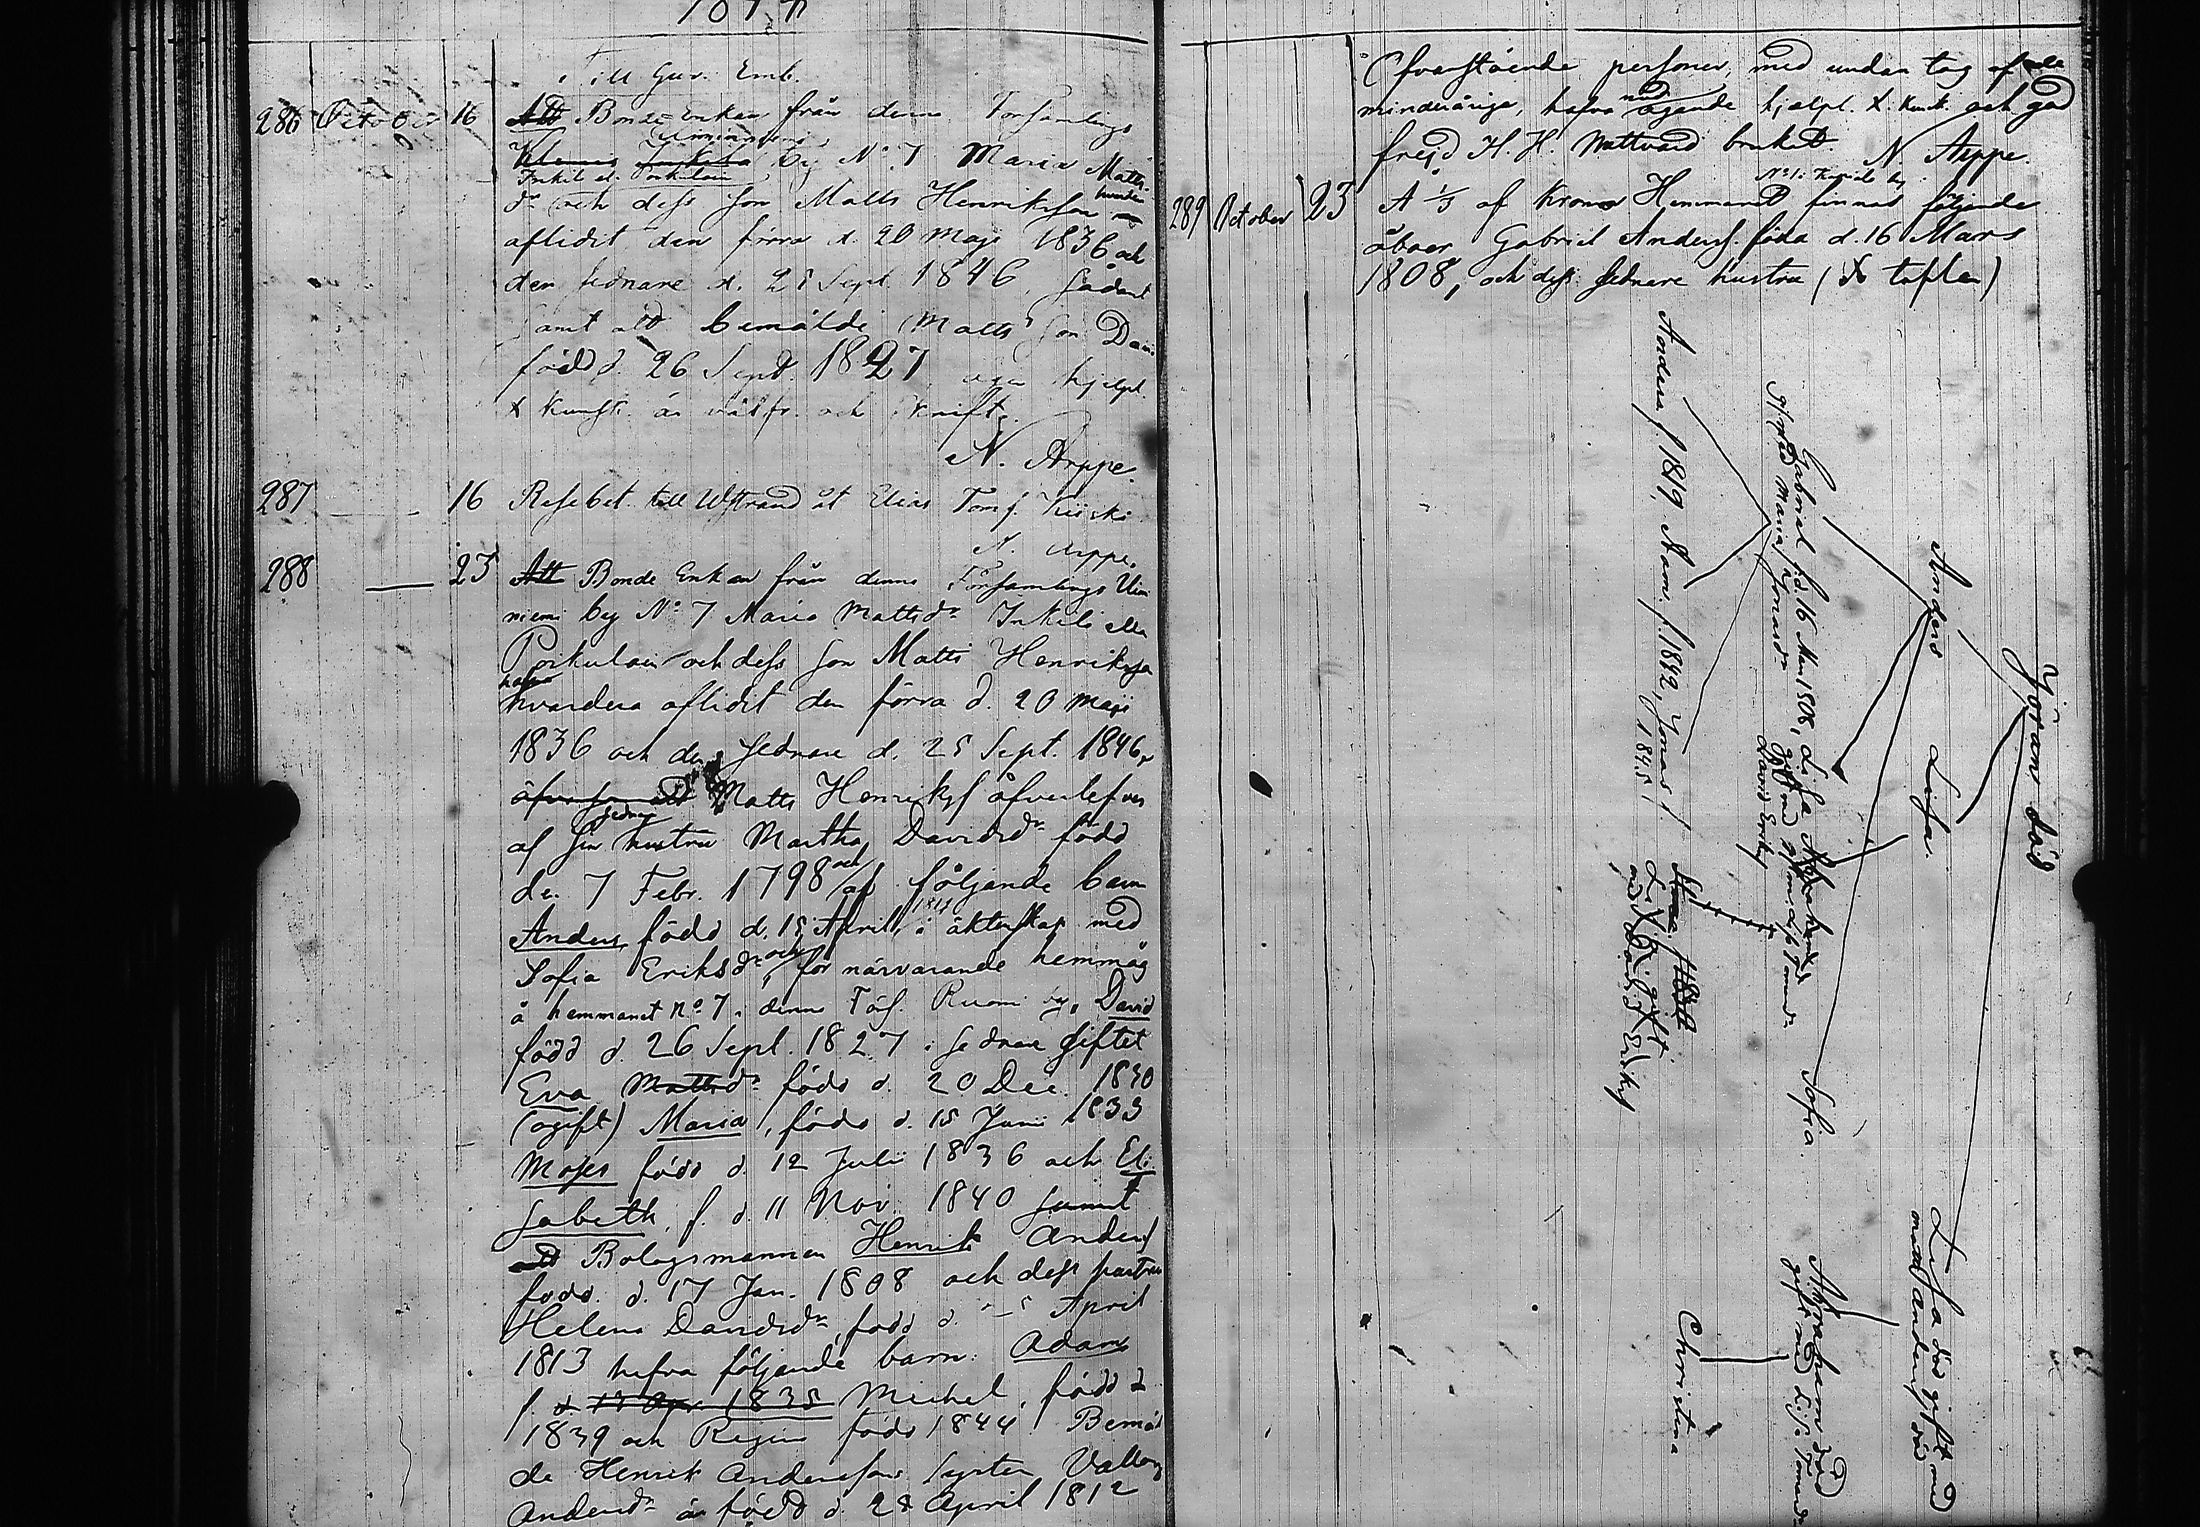 Till Guv. Emb.
286 October 16 Att Bonde Enkan från denna Församlings
Uiminniemi
by No 7 Maria Matts
Inkilä el. Porkulain
dr och dess son Matts Henriksson
aflidit den förra d. 20 Maji 1836 och
den sednare d. 25 Sept 1846, sådant
samt att bemälde Matts son David
född d. 26 Sept. 1827, äger hjelpl.
X kunsk. är väl fr. och skrift.
N. Arppe.
287 — 16 Resebet. till Wstrand åt Elias Tomss. Kiiski
N. Arppe.
288 — 23 Att Bonde Enkan från denna Församlings Uim
niemi by No 7 Maria Mattsdr Inkilä eller
Porkulain och dess son Matts Henriksson
hvardera aflidit den förra d. 20 Maji
1836 och den sednare d. 25 Sept. 1846,
Matts Henrikss öfverlefves
af sin sednare hustru Martha Davidsdr född
den 7 Febr. 1798 och af följande barn
Anders, född d. 15 April i äktenskap med
Sofia Eriksdr och för närvarande hemmåg
å hemmanet No 7 i denna Förs. Ruomi by, David
född d. 26 Sept. 1827 i sednare giftet
Eva Mattsdr född d. 20 Dec. 1830
(ogift) Maria, född d. 15 Juni 1833
Moses född d. 12 Julii 1836 och Eli
sabeth, f. d. 11 Nov. 1840 samt
att Bolagsmannen Henrik Anders
född d. 17 Jan. 1808 och dess hustru
Helena Davidsdr, född d. April
1813 hafva följande barn: Adam
f. 1835 Michel, född d
1839 och Regina född 1844. Bemäl
de Henrik Anderssons syster Valborg
Andersdr är född d. 28 April 1812
Ofvanstående personer, med undantag af de
minderåriga, hafva nöd
ägande hjelpl. X. kunsk. och god
frejd H. H. Nattvard brukat
N Arppe.
No 1 i by
289 October 23 A 1/3 af Krono Hemmanet finnas följande
åboer, Gabriel Anderss. född d. 16 Mars
1808, och dess sednare hustru (X taflan)
Jöran död
Anders Lisa. Lisa död gift med
med Anders död
Gabriel f. d. 16 Mars 1808, Lisa Sofia. Abraham död
gift med Maria Jonasdr gift med Lisa Tomasdr
David Ersson
Anders f. 1819, Adam f. 1842, Jonas f. 1845.
Lisa gift
med David Ersson
Christina